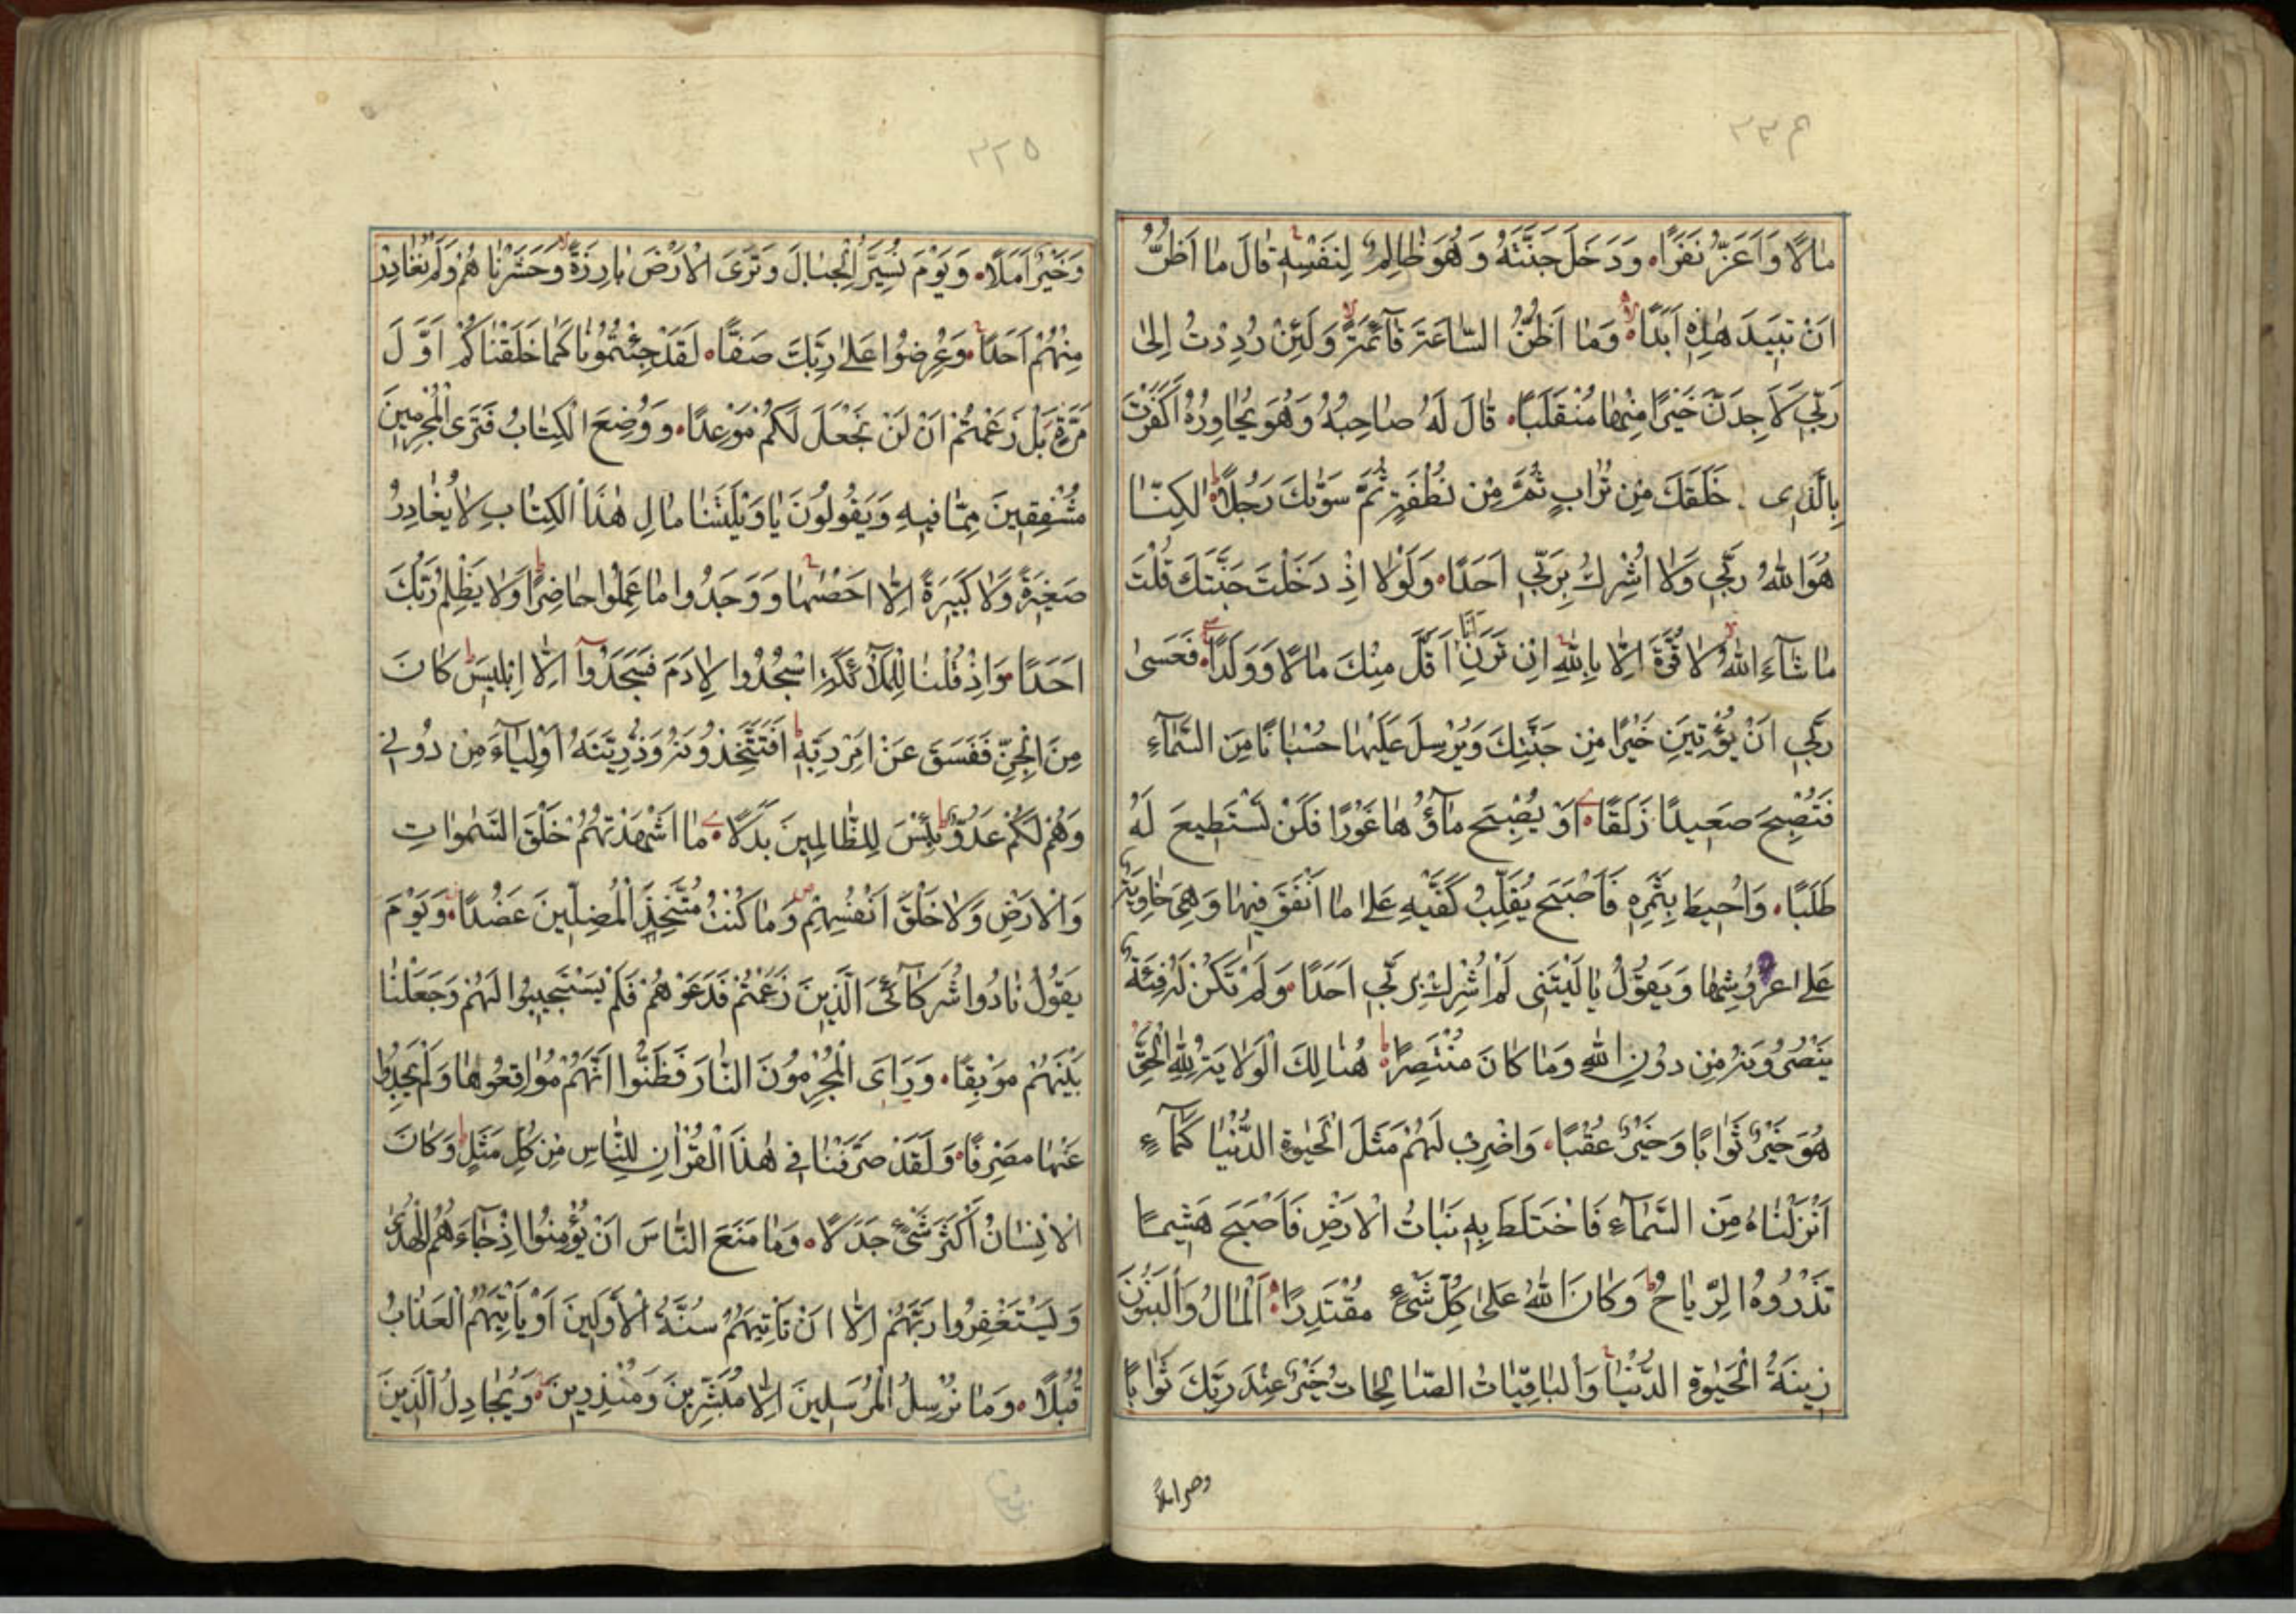 ٣٣٤
مٰالًا وَاَعَزُّ نَفَرًا وَدَخَلَ جَنَّتَهُ وَهُوَ ظٰالِمٌ لِنَفْسِهِ قٰالَ مٰا اَظُنُّ
اَنْ تَبِيدَ هٰذِهِ اَبَدًا وَمٰا اَظُنُّ السّٰاعَةَ قٰآئِمَةً وَلَئِنْ رُدِدْتُ اِلىٰ
رَبِّي لَاَجِدَنَّ خَيْرًا مِنْهٰا مُنْقَلَبًا قٰالَ لَهُ صٰاحِبُهُ وَهُوَ يُحٰاوِرُهُ اَكَفَرْتَ
بِالَّذِى خَلَقَكَ مِنْ تُرٰابٍ ثُمَّ مِنْ نُطْفَةٍ ثُمَّ سَوّٰيكَ رَجُلًا لٰكِنَّا
هُوَ اللّٰهُ رَبِّي وَلَا اُشْرِكُ بِرَبِّي اَحَدًا وَلَوْلَا اِذْ دَخَلْتَ جَنَّتَكَ قُلْتَ
مٰا شٰآءَ اللّٰهُ لَا قُوَّةَ اِلّٰا بِاللّٰهِ اِنْ تَرَنِ اَنَا اَقَلَّ مِنْكَ مٰالًا وَوَلَدًا فَعَسىٰ
رَبِّي اَنْ يُؤْتِيَنِ خَيْرًا مِنْ جَنَّتِكَ وَيُرْسِلَ عَلَيْهٰا حُسْبٰانًا مِنَ السَّمٰآءِ
فَتُصْبِحَ صَعِيدًا زَلَقًا اَوْ يُصْبِحَ مٰآؤُهٰا غَوْرًا فَلَنْ تَسْتَطِيعَ لَهُ
طَلَبًا وَاُحِيطَ بِثَمَرِهِ فَاَصْبَحَ يُقَلِّبُ كَفَّيْهِ عَلىٰ مٰا اَنْفَقَ فِيهٰا وَهِيَ خٰاوِيَةٌ
عَلىٰ عُرُوشِهٰا وَيَقُولُ يٰا لَيْتَنِى لَمْ اُشْرِكْ بِرَبِّي اَحَدًا وَلَمْ تَكُنْ لَهُ فِئَةٌ
يَنْصُرُونَهُ مِنْ دُونِ اللّٰهِ وَمٰا كٰانَ مُنْتَصِرًا هُنٰالِكَ الْوَلٰايَةُ لِلّٰهِ الْحَقِّ
هُوَ خَيْرٌ ثَوٰابًا وَخَيْرٌ عُقْبًا وَاضْرِبْ لَهُمْ مَثَلَ الْحَيٰوةِ الدُّنْيٰا كَمٰآءٍ
اَنْزَلْنٰاهُ مِنَ السَّمٰآءِ فَاخْتَلَطَ بِهِ نَبٰاتُ الْاَرْضِ فَاَصْبَحَ هَشِيمًا
تَذْرُوهُ الرِّيٰاحُ وَكٰانَ اللّٰهُ عَلىٰ كُلِّ شَىْءٍ مُقْتَدِرًا اَلْمٰالُ وَالْبَنُونَ
زِينَةُ الْحَيٰوةِ الدُّنْيٰا وَالْبٰاقِيٰاتُ الصّٰالِحٰاتُ خَيْرٌ عِنْدَ رَبِّكَ ثَوٰابًا
وخير املا
٣٣٥
وَخَيْرٌ اَمَلًا وَيَوْمَ نُسَيِّرُ الْجِبٰالَ وَتَرَى الْاَرْضَ بٰارِزَةً وَحَشَرْنٰاهُمْ وَلَمْ نُغٰادِرْ
مِنْهُمْ اَحَدًا وَعُرِضُوا عَلىٰ رَبِّكَ صَفًّا لَقَدْ جِئْتُمُونٰا كَمٰا خَلَقْنٰاكُمْ اَوَّلَ
مَرَّةٍ بَلْ زَعَمْتُمْ اَنْ لَنْ نَجْعَلَ لَكُمْ مَوْعِدًا وَوُضِعَ الْكِتٰابُ فَتَرَى الْمُجْرِمِينَ
مُشْفِقِينَ مِمّٰا فِيهِ وَيَقُولُونَ يٰا وَيْلَتَنٰا مٰالِ هٰذَا الْكِتٰابِ لٰا يُغٰادِرُ
صَغِيرَةً وَلٰا كَبِيرَةً اِلّٰا اَحْصٰيهٰا وَوَجَدُوا مٰا عَمِلُوا حٰاضِرًا وَلٰا يَظْلِمُ رَبُّكَ
اَحَدًا وَاِذْ قُلْنٰا لِلْمَلٰآئِكَةِ اسْجُدُوا لِاٰدَمَ فَسَجَدُوٓا اِلّٰا اِبْلِيسَ كٰانَ
مِنَ الْجِنِّ فَفَسَقَ عَنْ اَمْرِ رَبِّهِ اَفَتَتَّخِذُونَهُ وَذُرِّيَّتَهُ اَوْلِيٰآءَ مِنْ دُونِي
وَهُمْ لَكُمْ عَدُوٌّ بِئْسَ لِلظّٰالِمِينَ بَدَلًا مٰا اَشْهَدْتُهُمْ خَلْقَ السَّمٰوٰاتِ
وَالْاَرْضِ وَلٰا خَلْقَ اَنْفُسِهِمْ وَمٰا كُنْتُ مُتَّخِذَ الْمُضِلِّينَ عَضُدًا وَيَوْمَ
يَقُولُ نٰادُوا شُرَكٰآئِيَ الَّذِينَ زَعَمْتُمْ فَدَعَوْهُمْ فَلَمْ يَسْتَجِيبُوا لَهُمْ وَجَعَلْنٰا
بَيْنَهُمْ مَوْبِقًا وَرَاَى الْمُجْرِمُونَ النّٰارَ فَظَنُّوا اَنَّهُمْ مُوٰاقِعُوهٰا وَلَمْ يَجِدُوا
عَنْهٰا مَصْرِفًا وَلَقَدْ صَرَّفْنٰا فِي هٰذَا الْقُرْاٰنِ لِلنّٰاسِ مِنْ كُلِّ مَثَلٍ وَكٰانَ
الْاِنْسٰانُ اَكْثَرَ شَىْءٍ جَدَلًا وَمٰا مَنَعَ النّٰاسَ اَنْ يُؤْمِنُوا اِذْ جٰآءَهُمُ الْهُدىٰ
وَيَسْتَغْفِرُوا رَبَّهُمْ اِلّٰا اَنْ تَاْتِيَهُمْ سُنَّةُ الْاَوَّلِينَ اَوْ يَاْتِيَهُمُ الْعَذٰابُ
قُبُلًا وَمٰا نُرْسِلُ الْمُرْسَلِينَ اِلّٰا مُبَشِّرِينَ وَمُنْذِرِينَ وَيُجٰادِلُ الَّذِينَ